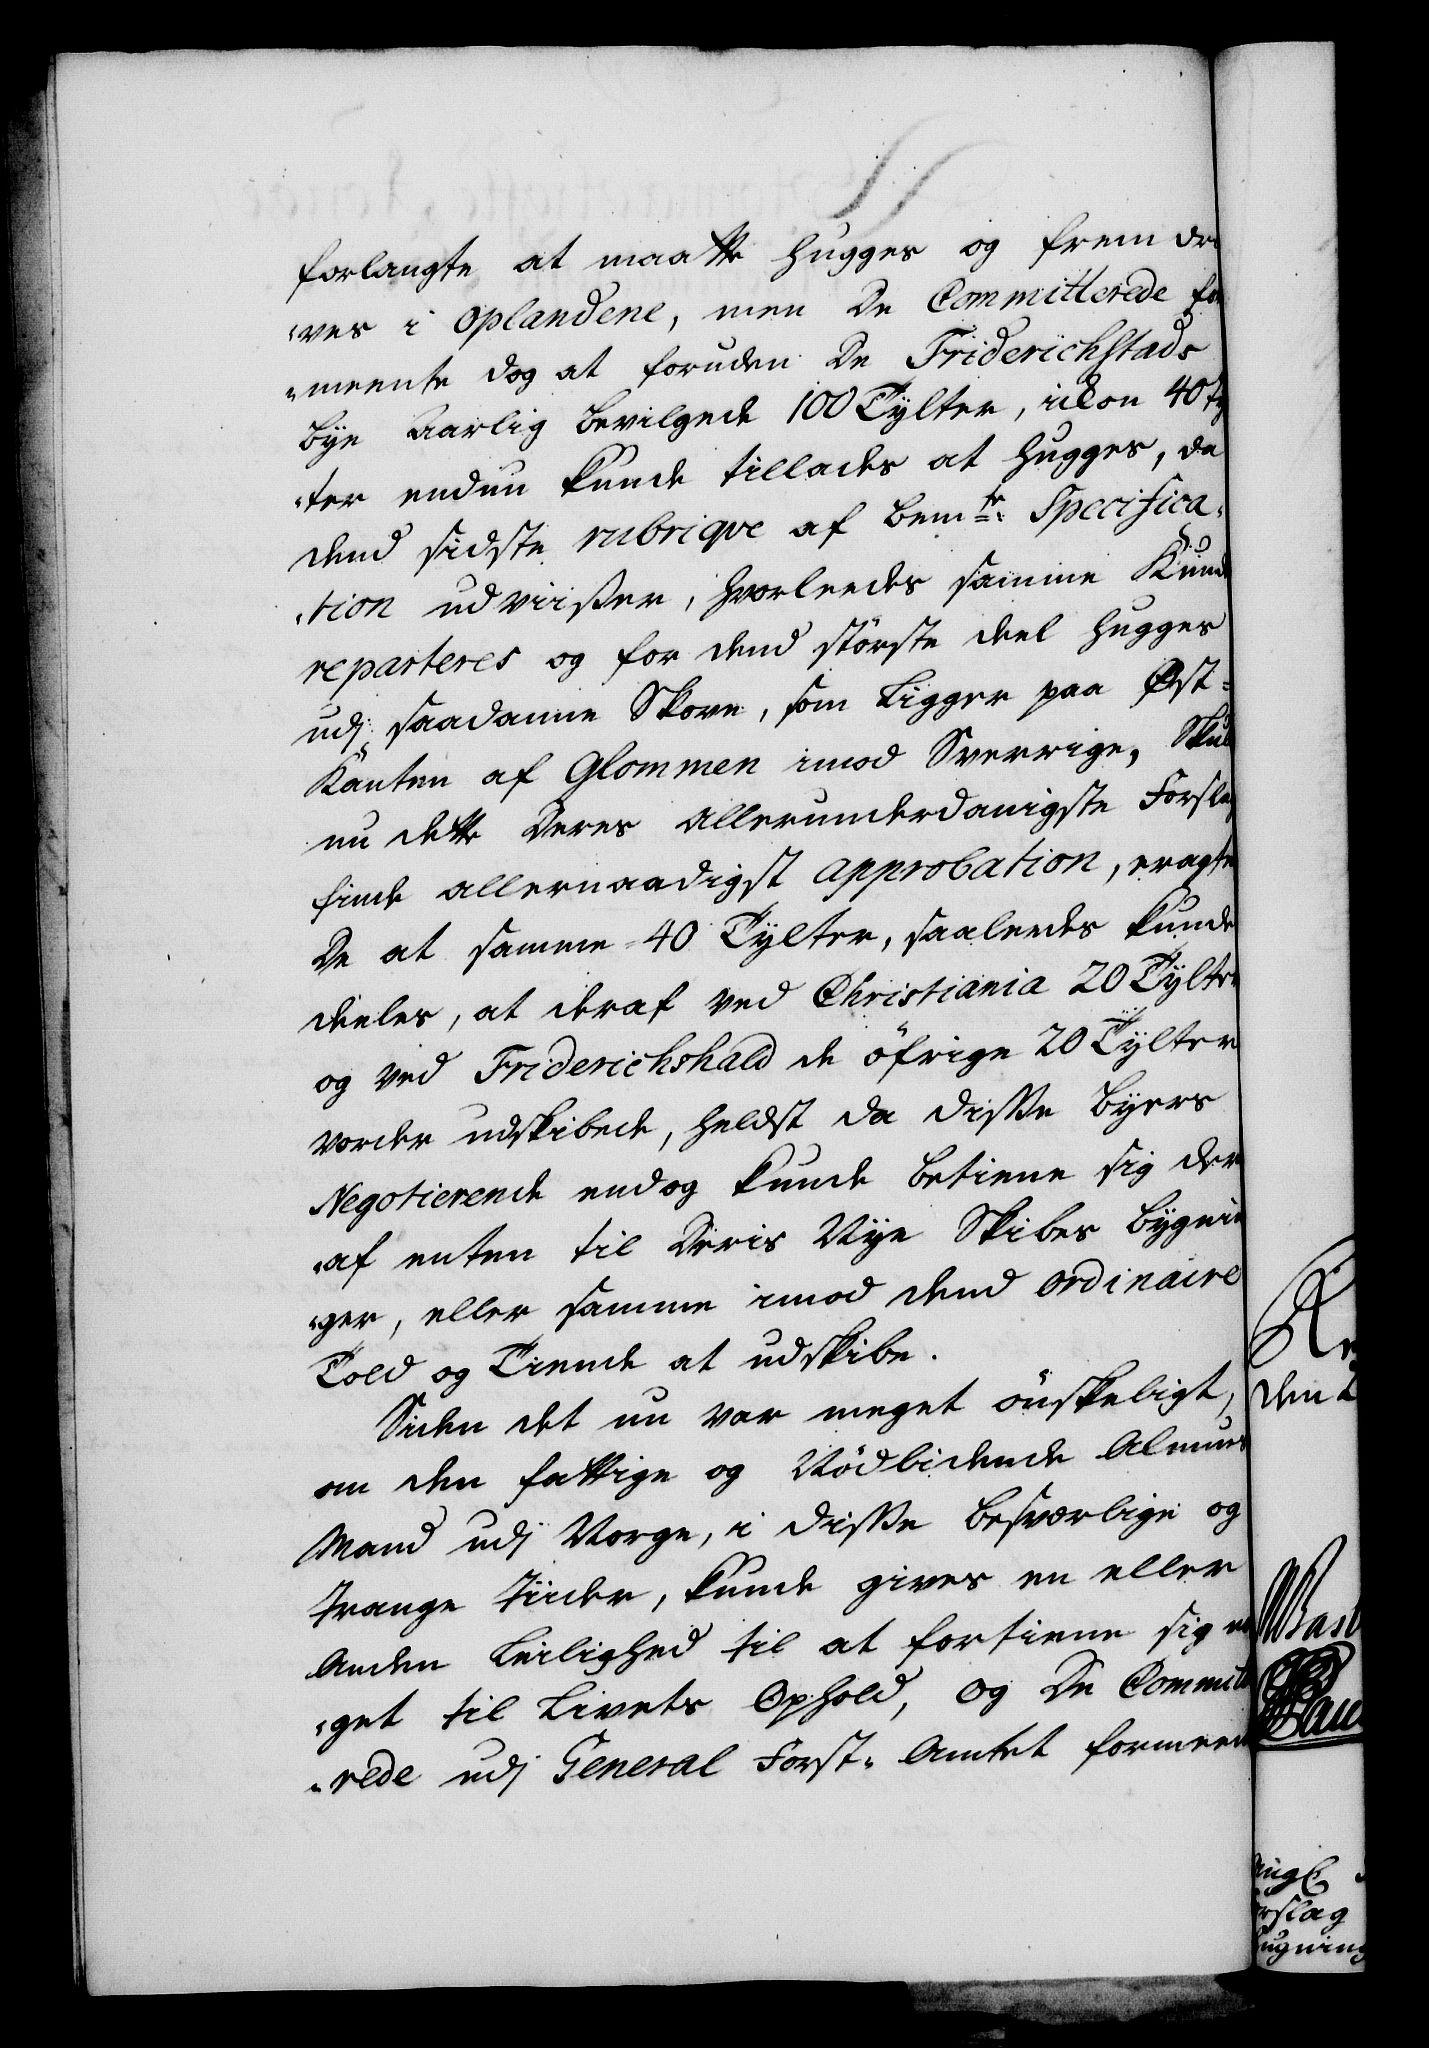 forlangte at maatte hugges og frem dri
„ves i Oplandene, men De Committerede for
„meente dog at foruden De Friderichstads
Bye Aarlig bevilgede 100 Tylter, icon 40 Ty
„ter endnu kunde tillades at hugges, da
dend sidste rubrique af bemte: Specifica„
„tion udviiser, hvorleedes samme Kunde
reparteres og for dend störste deel hugges
udj saadanne Skove, som Ligger paa Øst=
Kanten af Glommen imod Sverrige, Skul
nu dette Deres allerunderdanigste Forslag
finde allernaadigst approbation, eragte
De at samme 40 Tylter, saaleedes kunde
deeles, at deraf ved Christiania 20 Tylter
og ved Friderichshald de öfrige 20 Tylter
vorder udskibede, heldst da disse Byers
Negotierende endog kunde betiene sig der
„af enten til Deris Nye Skibes bygnin
„ger, eller samme imod dend ordinaire
Told og Tiende at udskibe.
Siden det nu var meget önskeligt,
om den fattige og Nödlidende Almues
Mand udj Norge, i disse besværlige og
trange tiider, kunde gives en eller
Anden Leilighed til at fortiene sig no
„get til Livets Ophold, og De Committe
„rede udj General Forst„ Amtet formeen
den
forslag